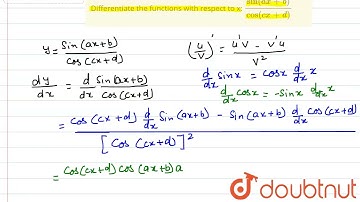 Differentiate the functions with respect to x, sin(ax + b) / cos(cx + d)
y = Sin(ax+b) / Cos(cx+d)
(u/v)' = u'v - v'u / v²
dy/dx = d/dx Sin(ax+b) / Cos(cx+d)
d/dx Sinx = Cosx d/dx x
d/dx Cosx = -Sinx d/dx x
= Cos(cx+d) d/dx Sin(ax+b) - Sin(ax+b) d/dx Cos(cx+d) / [Cos(cx+d)]²
= Cos(cx+d) Cos(ax+b) a
doubtnut